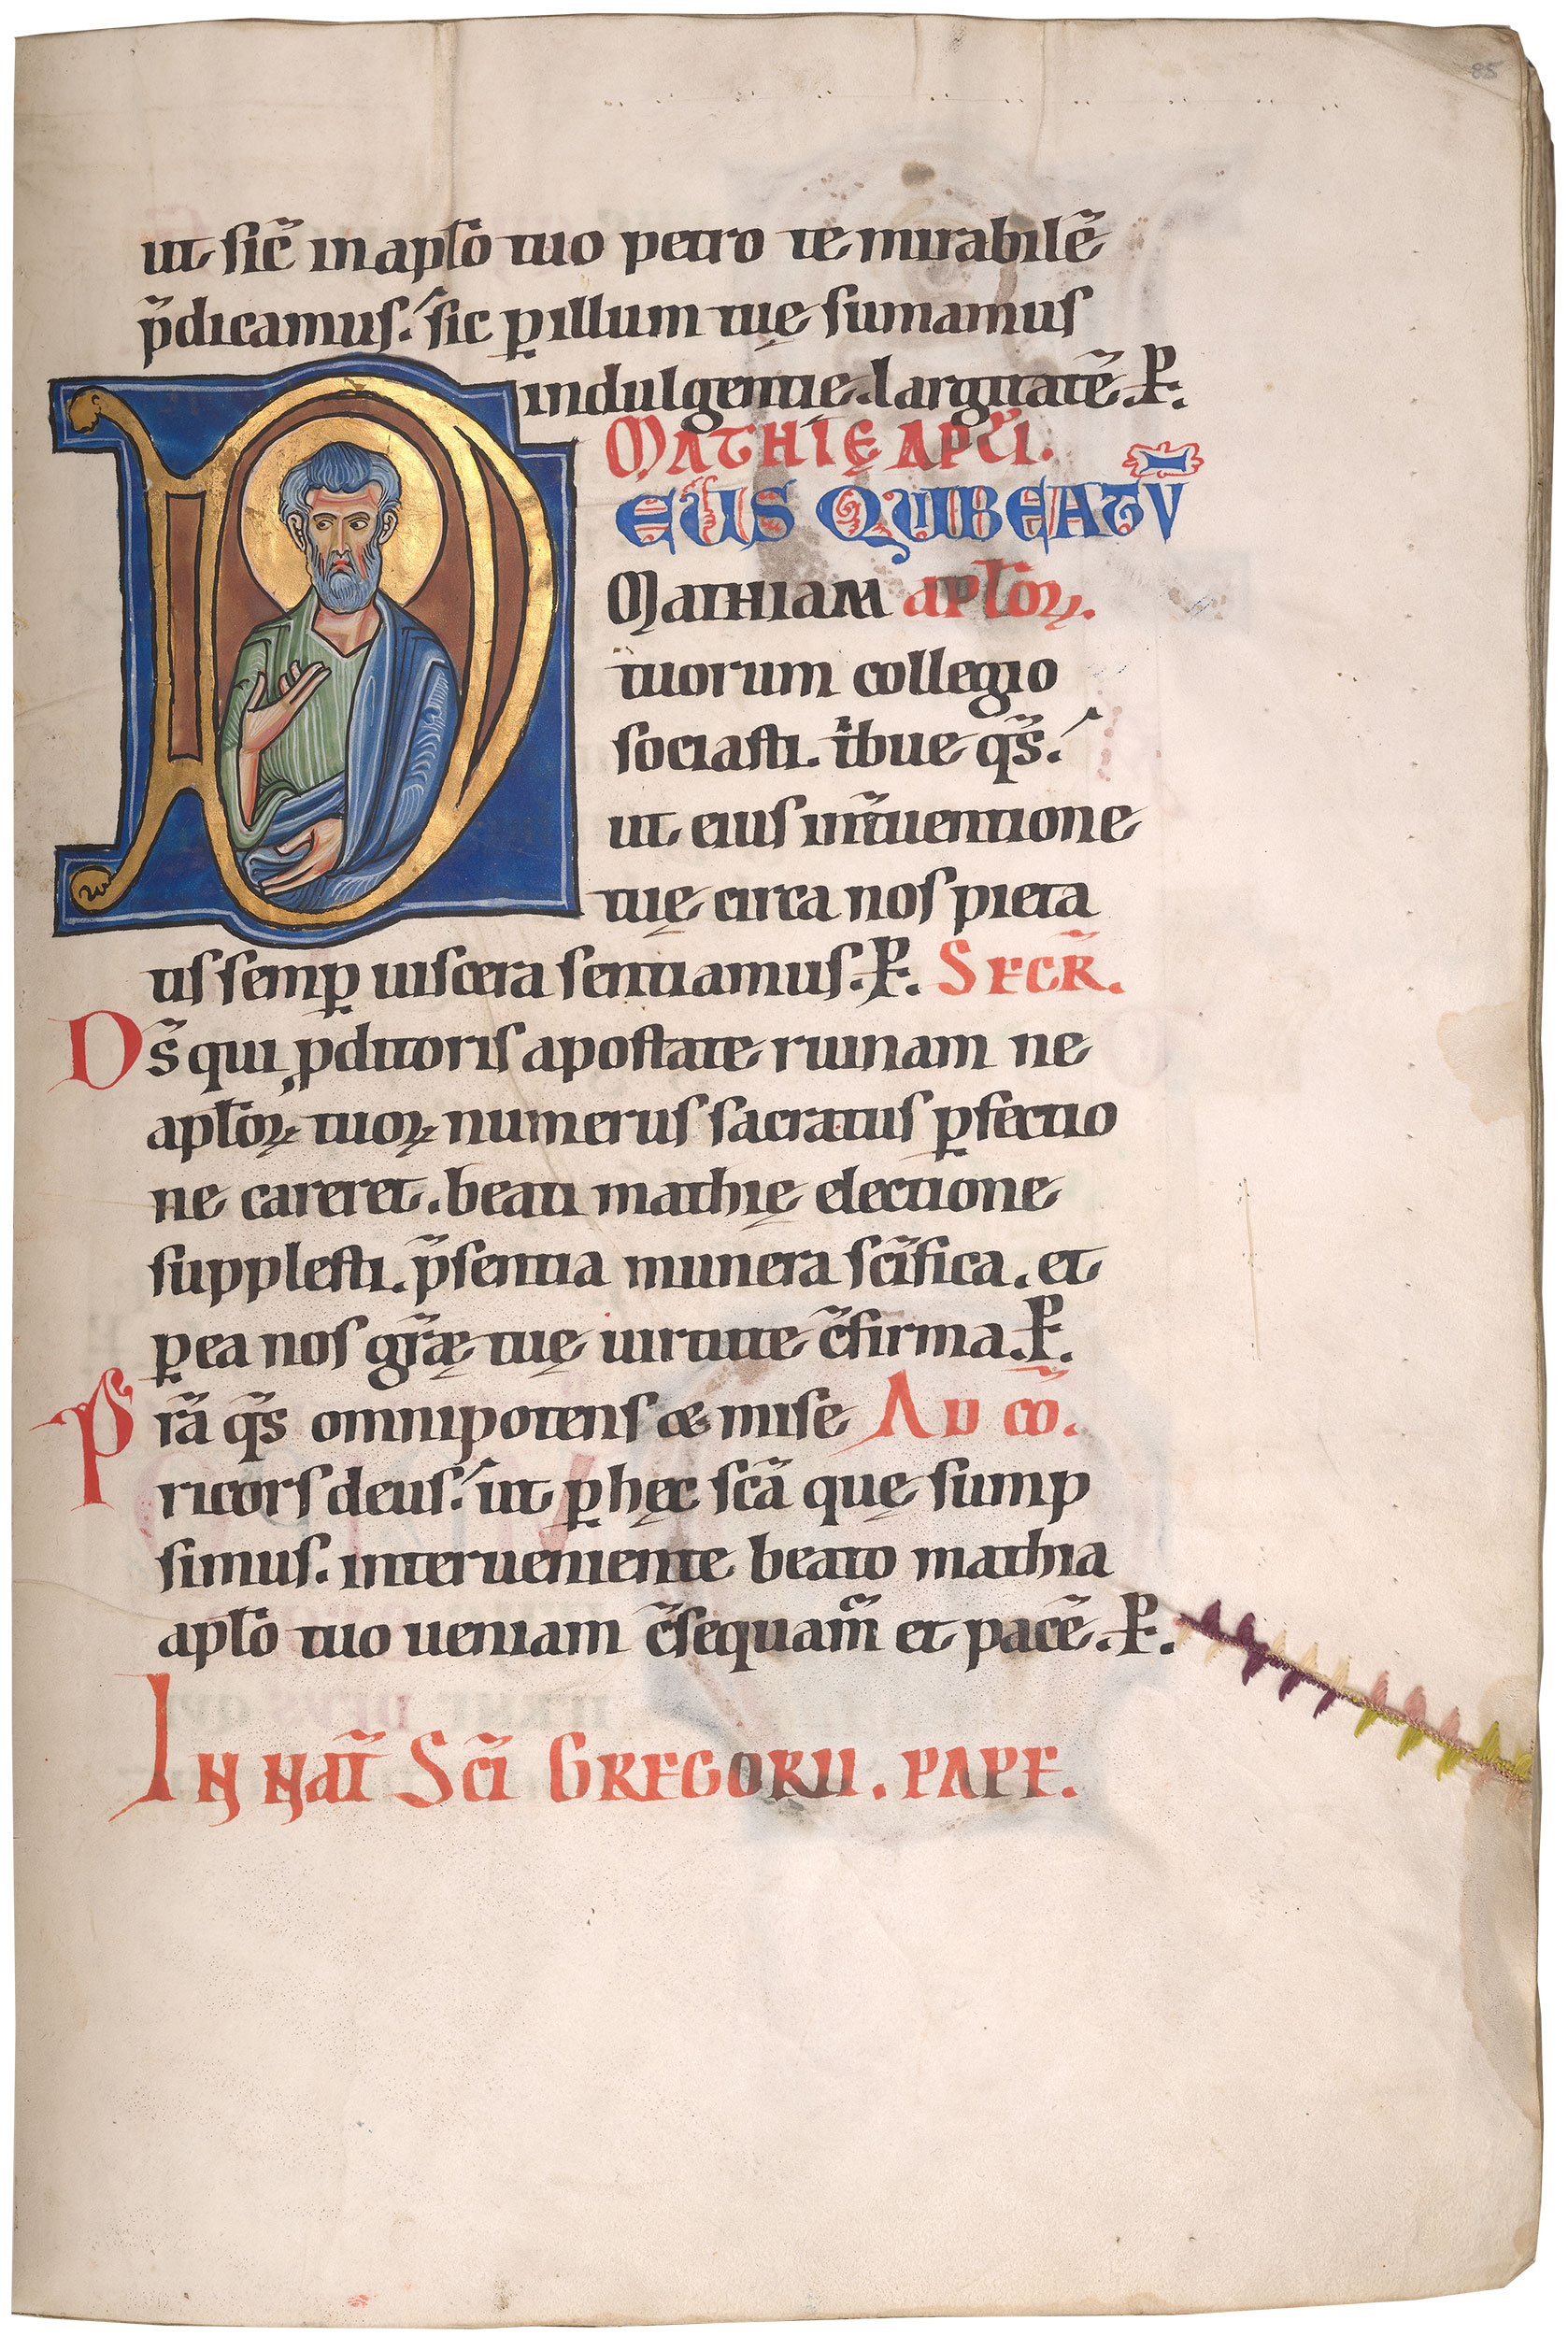 85
ut sic̄ in apl̄o tuo petro te mirabilē
p̄dicamus. sic ꝑ illum tuę sumamus
indulgentie. largitatē. P̲.
MATHIĘ APL̄I.
DEUS QUI BEATŪ
MATHIAM apl̄oꝝ.
tuorum collegio
sociasti. tͥbue qs̄.
ut eius int̄uentione
tuę circa nos pieta
tis semꝑ uiscera sentiamus. P̲. SECR̄.
Ds̄ qui ꝓditoris apostate ruinam ne
apl̄oꝝ tuoꝝ numerus sacratus ꝑfectio
ne careret. beati mathię electione
supplesti. p̄sentia munera sc̄ifica. et
ꝑ ea nos gr̄æ tuę uirtute c̄firma. P̲.
Pr̄a qs̄ omnipotens æ mise AD CŌ.
ricors deus. ut ꝑ hęc sc̄a quę sump
simus. interueniente beato mathia
apl̄o tuo ueniam c̄sequam̄ et pacē. P̲.
IN NAT̄ SC̄I GREGORII. PAPE.